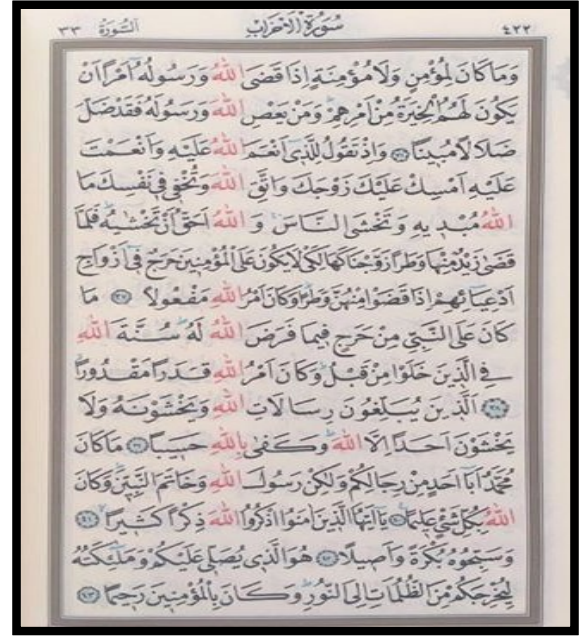 ٤٢٢ سُورَةُ الْاَحْزَابِ اَلسُّورَةُ ٣٣
وَمَا كَانَ لِمُؤْمِنٍ وَلَا مُؤْمِنَةٍ اِذَا قَضَى اللّٰهُ وَرَسُولُهُٓ اَمْرًا اَنْ
يَكُونَ لَهُمُ الْخِيَرَةُ مِنْ اَمْرِهِمْ وَمَنْ يَعْصِ اللّٰهَ وَرَسُولَهُ فَقَدْ ضَلَّ
ضَلَالًا مُبِينًا ﴿٣٦﴾ وَاِذْ تَقُولُ لِلَّذِٓي اَنْعَمَ اللّٰهُ عَلَيْهِ وَاَنْعَمْتَ
عَلَيْهِ اَمْسِكْ عَلَيْكَ زَوْجَكَ وَاتَّقِ اللّٰهَ وَتُخْفِي فِي نَفْسِكَ مَا
اللّٰهُ مُبْدِيهِ وَتَخْشَى النَّاسَ وَ اللّٰهُ اَحَقُّ اَنْ تَخْشٰيهُ فَلَمَّا
قَضٰى زَيْدٌ مِنْهَا وَطَرًا زَوَّجْنَاكَهَا لِكَيْ لَا يَكُونَ عَلَى الْمُؤْمِنِينَ حَرَجٌ فِٓي اَزْوَاجِ
اَدْعِيَٓائِهِمْ اِذَا قَضَوْا مِنْهُنَّ وَطَرًا وَكَانَ اَمْرُ اللّٰهِ مَفْعُولًا ﴿٣٧﴾ مَا
كَانَ عَلَى النَّبِيِّ مِنْ حَرَجٍ فِيمَا فَرَضَ اللّٰهُ لَهُ سُنَّةَ اللّٰهِ
فِي الَّذِينَ خَلَوْا مِنْ قَبْلُ وَكَانَ اَمْرُ اللّٰهِ قَدَرًا مَقْدُورًا
﴿٣٨﴾ اَلَّذِينَ يُبَلِّغُونَ رِسَالَاتِ اللّٰهِ وَيَخْشَوْنَهُ وَلَا
يَخْشَوْنَ اَحَدًا اِلَّا اللّٰهَ وَكَفٰى بِاللّٰهِ حَسِيبًا ﴿٣٩﴾ مَا كَانَ
مُحَمَّدٌ اَبَٓا اَحَدٍ مِنْ رِجَالِكُمْ وَلٰكِنْ رَسُولَ اللّٰهِ وَخَاتَمَ النَّبِيّ۪نَ وَكَانَ
اللّٰهُ بِكُلِّ شَيْءٍ عَلِيمًا ﴿٤٠﴾ يَٓا اَيُّهَا الَّذِينَ اٰمَنُوا اذْكُرُوا اللّٰهَ ذِكْرًا كَثِيرًا ﴿٤١﴾
وَسَبِّحُوهُ بُكْرَةً وَاَصِيلًا ﴿٤٢﴾ هُوَ الَّذِي يُصَلِّي عَلَيْكُمْ وَمَلٰٓئِكَتُهُ
لِيُخْرِجَكُمْ مِنَ الظُّلُمَاتِ اِلَى النُّورِ وَكَانَ بِالْمُؤْمِنِينَ رَحِيمًا ﴿٤٣﴾